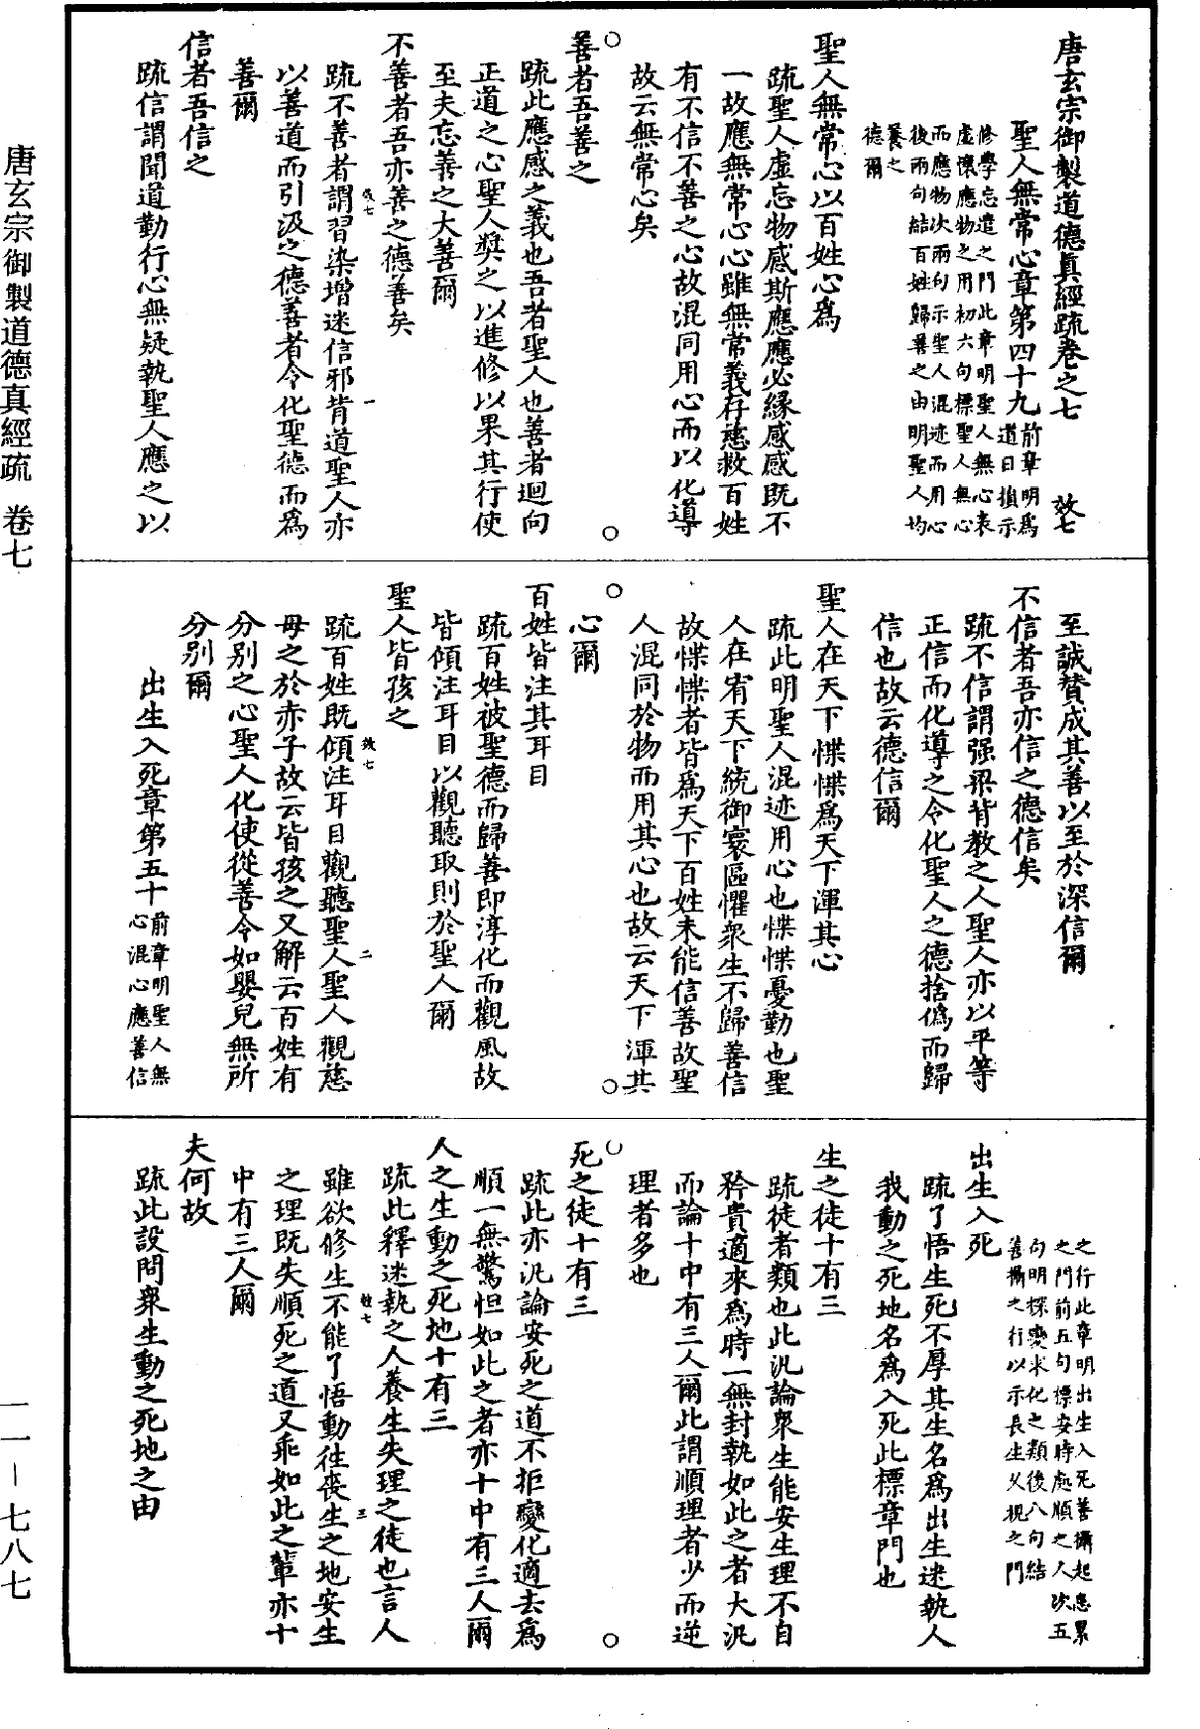 唐玄宗御製道德真經疏卷之七　效七
聖人無常心章第四十九
前章明爲
道日損示
修學忘遣之門此章明聖人無心表
虛懷應物之用初六句標聖人無心
而應物次兩句示聖人混迹而用心
後兩句結百姓歸善之由明聖人均
養之
德爾
聖人無常心以百姓心爲
疏聖人虛忘物感斯應應必緣感感既不
一故應無常心心雖無常義存慈救百姓
有不信不善之心故混同用心而以化導
故云無常心矣
善者吾善之
疏此應感之義也吾者聖人也善者迴向
正道之心聖人奬之以進修以果其行使
至夫忘善之大善爾
不善者吾亦善之德善矣
疏不善者謂習染增迷信邪背道聖人亦
以善道而引汲之德善者令化聖德而爲
善爾
信者吾信之
疏信謂聞道勤行心無疑執聖人應之以
至誠賛成其善以至於深信爾
不信者吾亦信之德信矣
疏不信謂强梁背教之人聖人亦以平等
正信而化導之令化聖人之德捨僞而歸
信也故云德信爾
聖人在天下惵惵爲天下渾其心
疏此明聖人混迹用心也惵惵憂勤也聖
人在宥天下統御寰區懼衆生不歸善信
故惵惵者皆爲天下百姓未能信善故聖
人混同於物而用其心也故云天下渾其
心爾
百姓皆注其耳目
疏百姓被聖德而歸善即淳化而觀風故
皆傾注耳目以觀聽取則於聖人爾
聖人皆孩之
疏百姓既傾注耳目觀聽聖人聖人觀慈
母之於赤子故云皆孩之又解云百姓有
分別之心聖人化使從善令如嬰兒無所
分別爾
出生入死章第五十
前章明聖人無
心混心應善信
之行此章明出生入死善攝起患累
之門前五句標安時處順之人次五
句明探變求化之類後八句結
善攝之行以示長生久視之門
出生入死
疏了悟生死不厚其生名爲出生迷執人
我動之死地名爲入死此標章門也
生之徒十有三
疏徒者類也此汎論衆生能安生理不自
矜貴適來爲時一無封執如此之者大汎
而論十中有三人爾此謂順理者少而逆
理者多也
死之徒十有三
疏此亦汎論安死之道不拒變化適去爲
順一無驚怛如此之者亦十中有三人爾
人之生動之死地十有三
疏此釋迷執之人養生失理之徒也言人
雖欲修生不能了悟動往喪生之地安生
之理既失順死之道又乖如此之輩亦十
中有三人爾
夫何故
疏此設問衆生動之死地之由
唐玄宗御製道德真經疏　卷七
一一—七八七